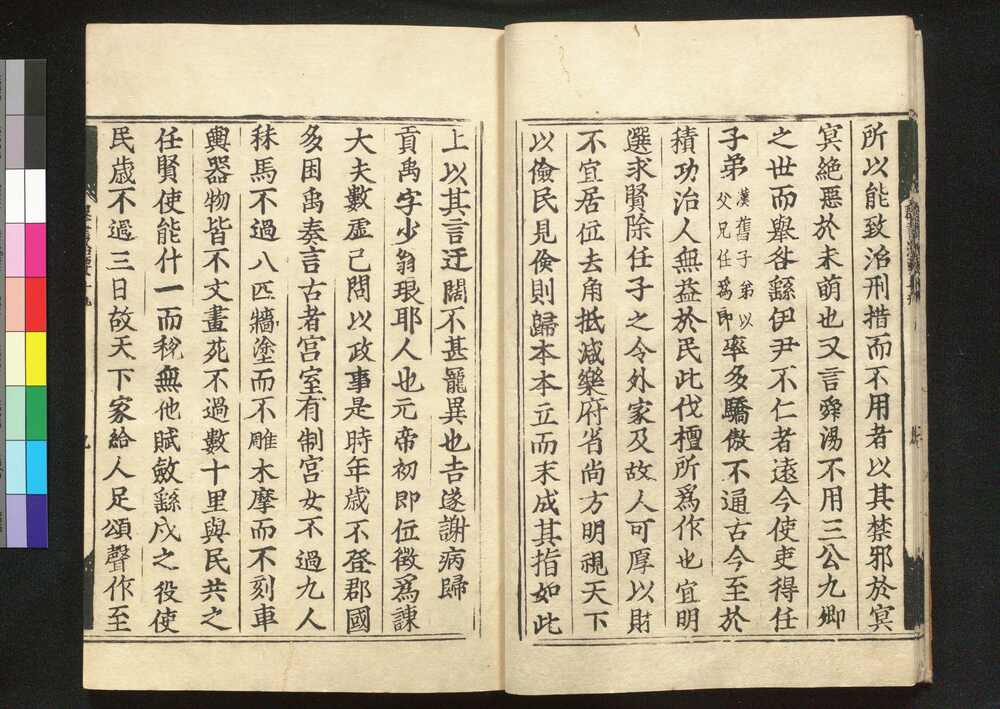 所以能致治刑措而不用者以其禁邪於冥
冥絶惡於未萌也又言舜湯不用三公九卿
之世而舉咎繇伊尹不仁者遠今使吏得任
子弟
漢舊子弟以
父兄任爲郎
率多驕傲不通古今至於
積功治人無益於民此伐檀所爲作也宜明
選求賢除任子之令外家及故人可厚以財
不宜居位去角抵减樂府省尚方明視天下
以儉民見儉則歸本本立而末成其指如此
上以其言迂闊不甚寵異也吉遂謝病歸
貢禹字少翁琅耶人也元帝初即位徵爲諫
大夫數虚己問以政事是時年歳不登郡國
多困禹奏言古者宮室有制宮女不過九人
秣馬不過八匹牆塗而不雕木摩而不刻車
輿器物皆不文畫苑不過數十里與民共之
任賢使能什一而稅無他賦斂繇戍之役使
民歳不過三日故天下家給人足頌聲作至
九